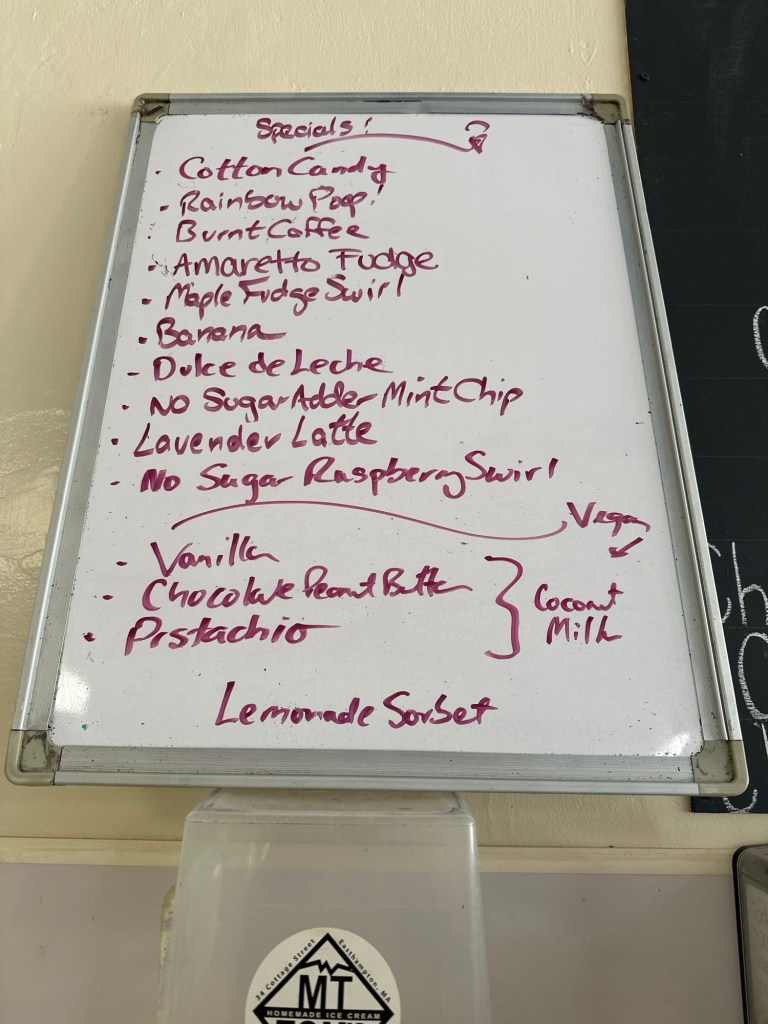 Specials!
· Cotton Candy
· Rainbow Poop!
· Burnt Coffee
· Amaretto Fudge
· Maple Fudge Swirl
· Banana
- Dulce de Leche
· No Sugar Adder Mint Chip
· Lavender Latte
- No Sugar Raspberry Swirl
Vegan
· Vanilla
· Chocolate Peanut Butter
· Pistachio
Coconut
Milk
Lemonade Sorbet
34 Cottage Street Easthampton, MA
MT
HOMEMADE ICE CREAM